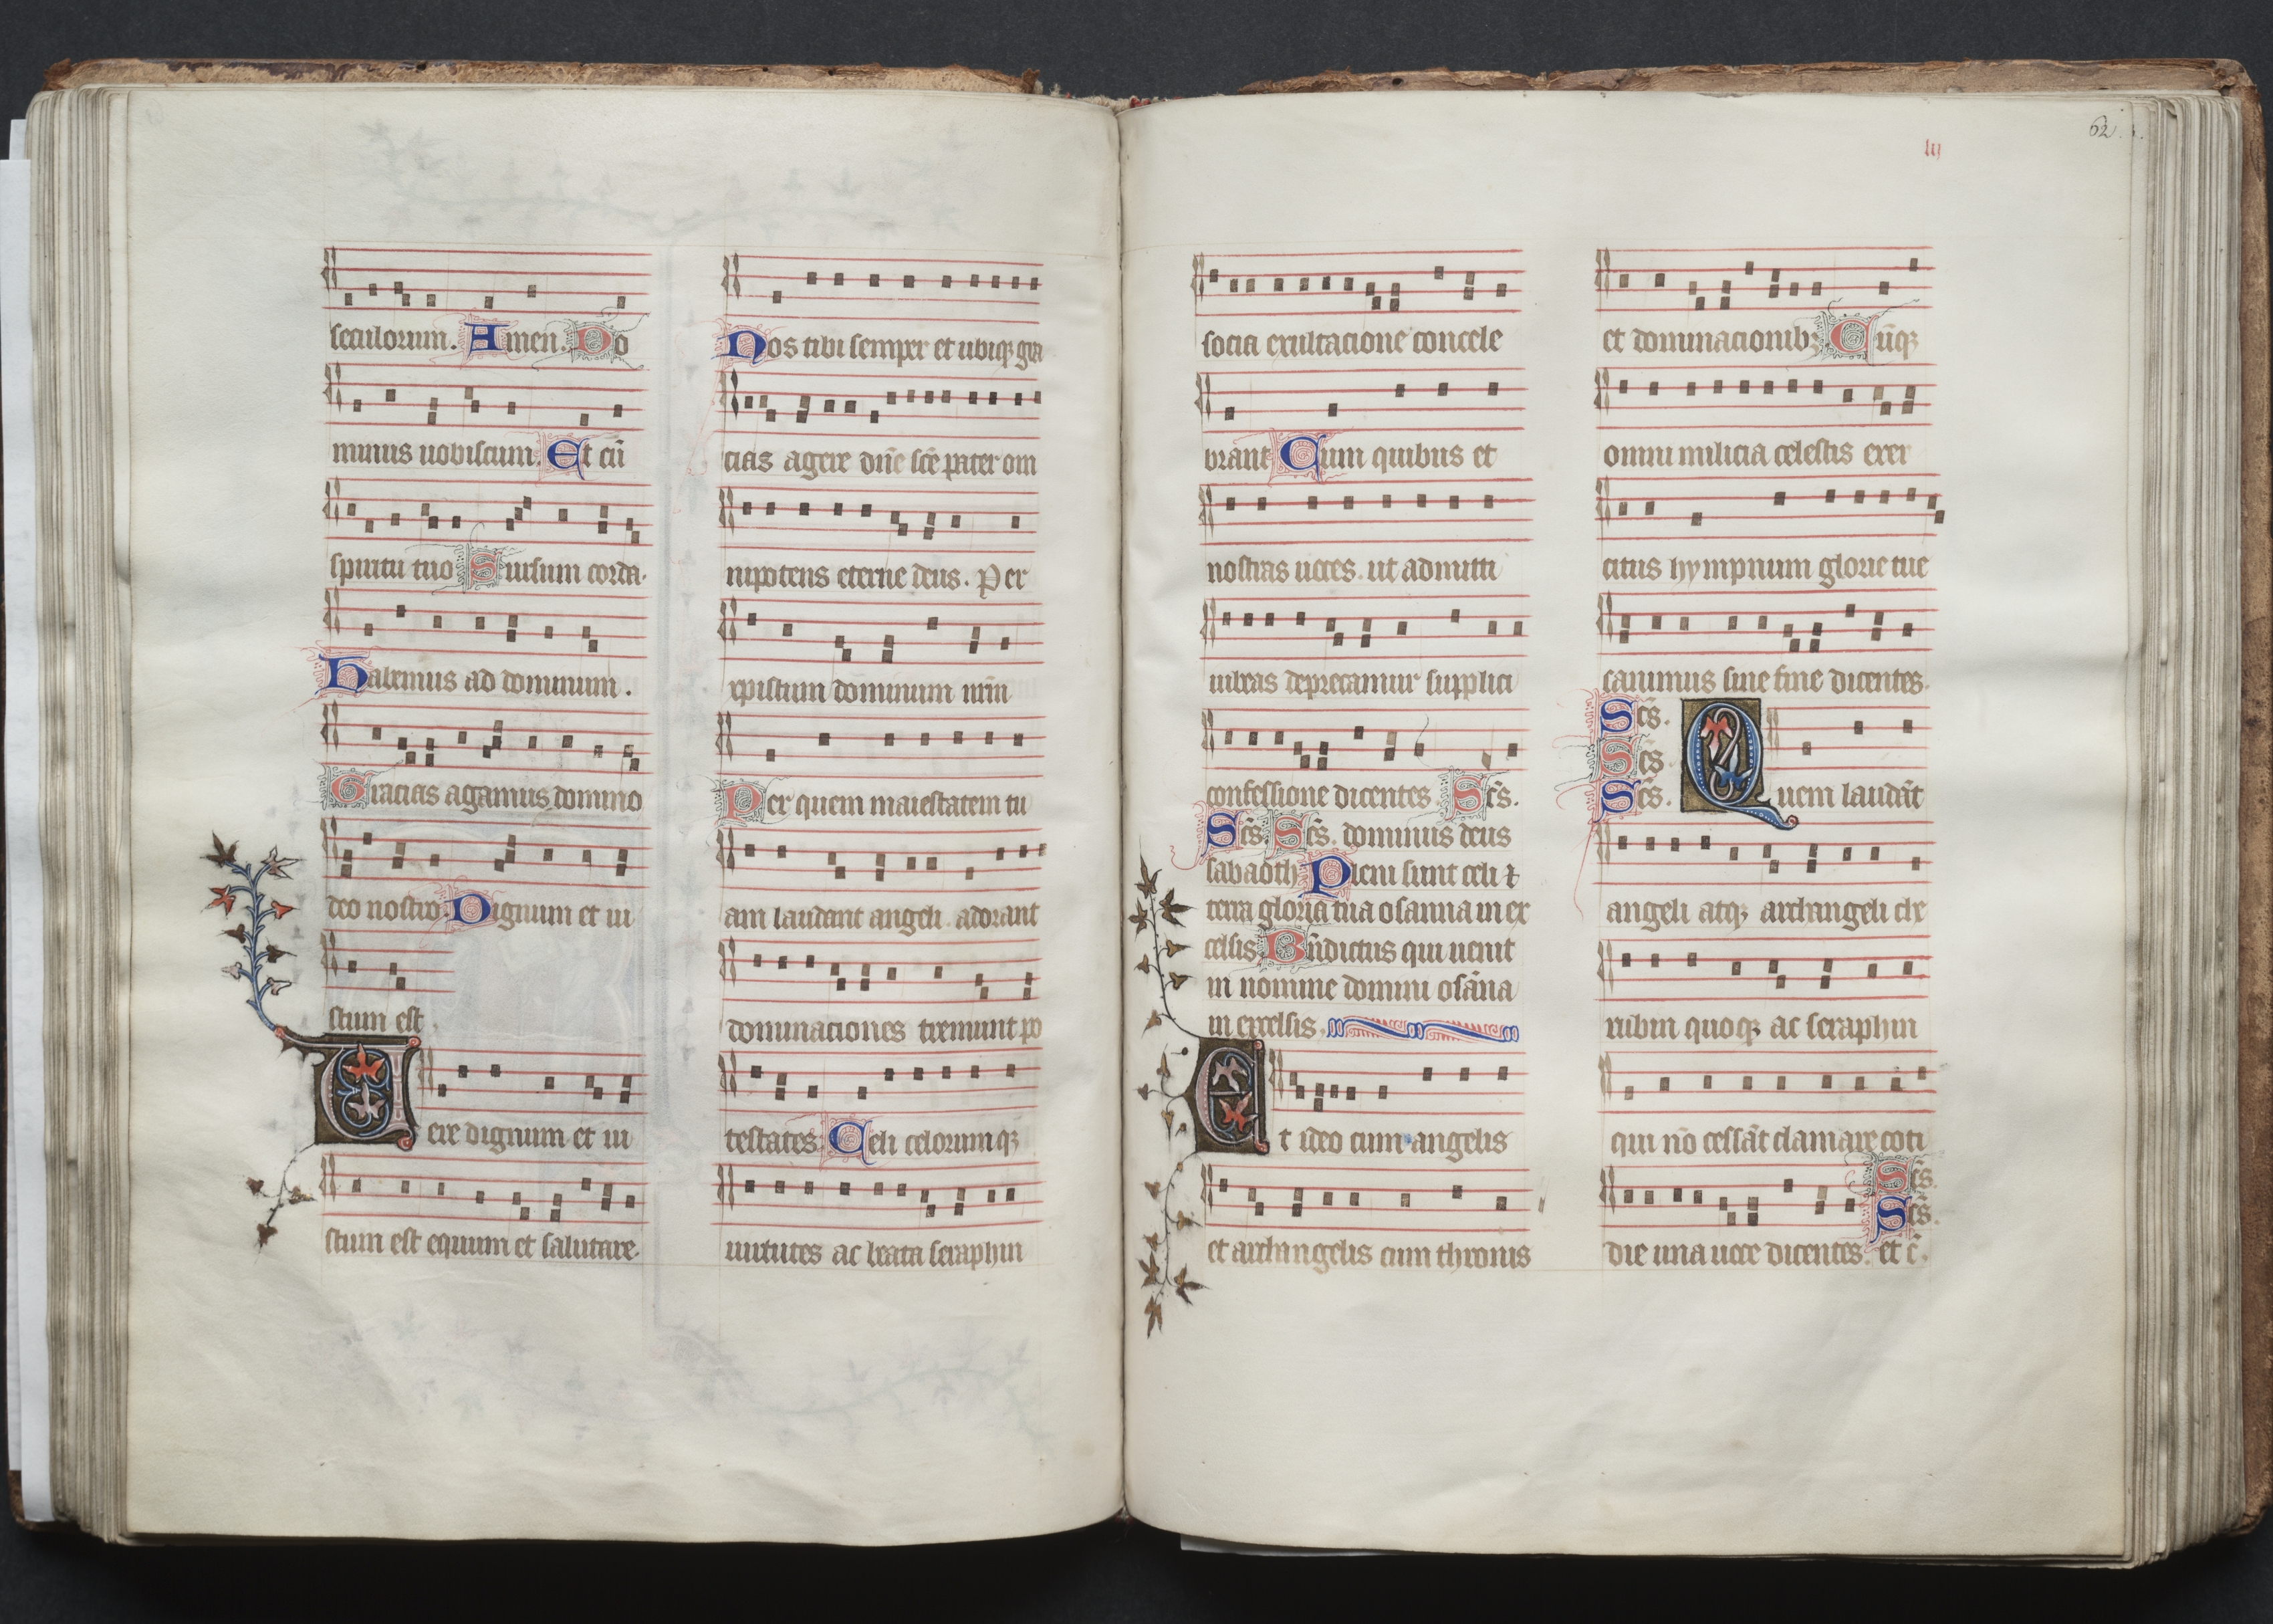 seculorum. Amen. Do
minus uobiscum. Et cū
spiritu tuo Sursum corda.
Habemus ad dominum.
Gracias agamus domino
deo nostro. Dignum et iu
stum est.
Uere dignum et iu
stum est equum et salutare.
Nos tibi semper et ubiqꝫ gra
cias agere dn̄e sc̄e pater om
nipotens eterne deus. Per
xpistum dominum nr̄m
Per quem maiestatem tu
am laudant angeli. adorant
dominaciones tremunt po
testates. Celi celorumqꝫ
uirtutes ac beata seraphin
62.
socia exultacione concele
brant Cum quibus et
nostras uoces. ut admitti
iubeas deprecamur supplici
confessione dicentes. Sc̄s.
Sc̄s. Sc̄s. dominus deus
sabaoth. Pleni sunt celi ⁊
terra gloria tua osanna in ex
celsis. Bn̄dictus qui uenit
in nomine domini osāna
in excelsis.
Et ideo cum angelis
et archangelis cum thronis
et dominacionibꝫ Cūqꝫ
omni milicia celestis exer
citus hympnum glorie tue
canimus sine fine dicentes.
Sc̄s.
Sc̄s.
Sc̄s.
Quem laudāt
angeli atqꝫ archangeli che
rubin quoqꝫ ac seraphin
qui nō cessāt clamare coti
Sc̄s.
Sc̄s.
die una uoce dicentes. et c̄.